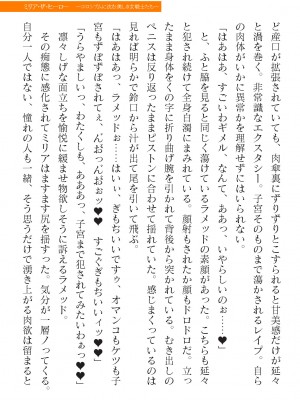 ど産口が拡張されていても、肉傘裏にずりずりとこすられると甘美感だけが延々
と渦を巻く。非常識なエクスタシー。子宮そのものまで蕩かされるレイプ。自ら
の肉体がいかに異常かを理解せずにはいられない。
「はあはあっ、すごいわギメル、なんて、ああっ、いやらしいのぉ……♥
　と、ふと脇を見ると同じく蕩けているラメッドの素顔があった。こちらも延々
と犯され続けて全身白濁にまみれている。顔射もされたか顔もドロドロだ。立っ
たまま身体をくの字に折り曲げ腕を引かれて背後から突かれている。むき出しの
ペニスは反り返ったままピストンに合わせて揺れていた。感じまくっているのは
見れば明らかで鈴口から汁が出て尾を引いて飛ぶ。
「はぁはぁっ、ラメッドぉ……はいぃ、ぎもぢいいですゥ、オマンコもケツも子
宮もずぼずぼされてぇっ、んおっんおぉッ♥♥　すごくぎもぢいいイッ♥♥」
「うらやましいっ、わたくしも、あああっ、子宮まで犯されてみたいわぁっ♥♥」
　凛々しげな面立ちを愉悦に緩ませ物欲しそうに訴えるラメッド。
　その痴態に感化されてミリアはますます尻を揺すった。気分が一層ノってくる。
自分一人ではない、憧れの人も一緒。そう思うだけで湧き上がる肉欲は留まると